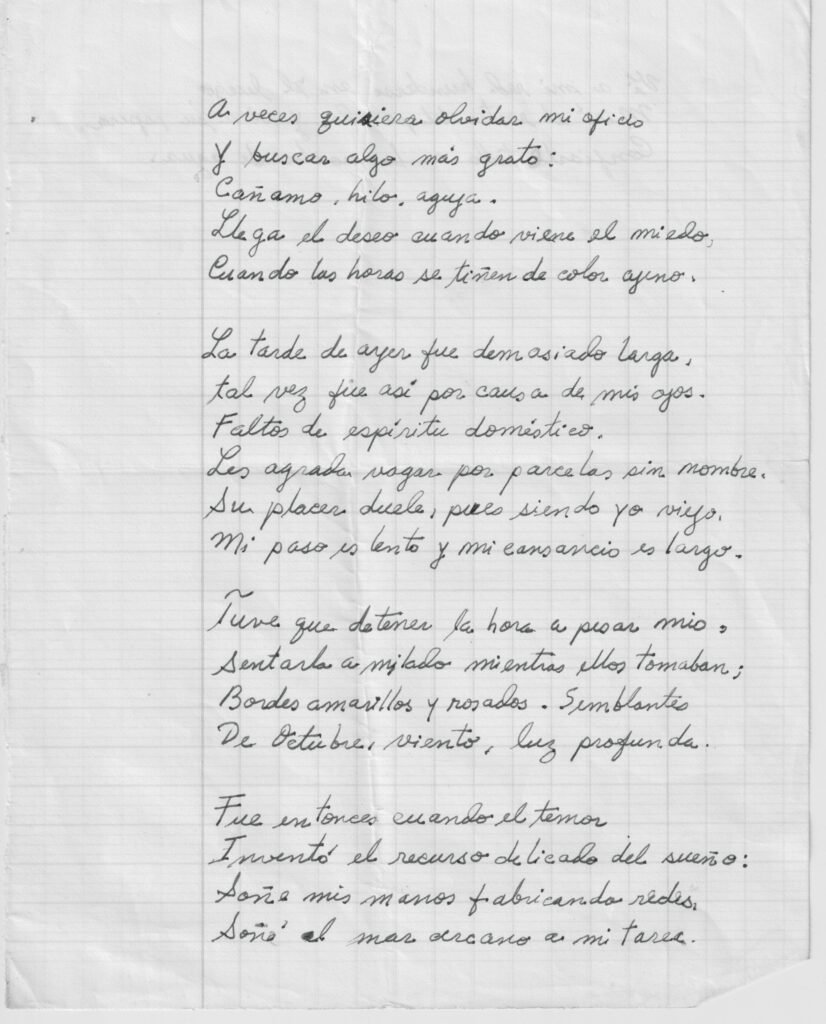 A veces quisiera olvidar mi oficio
Y buscar algo más grato:
Cáñamo, hilo, aguja.
Llega el deseo cuando viene el miedo,
Cuando las horas se tiñen de color ajeno.
La tarde de ayer fue demasiado larga,
tal vez fue así por causa de mis ojos.
Faltos de espíritu doméstico.
Les agrada vagar por parcelas sin nombre.
Su placer duele, pues siendo yo viejo,
Mi paso es lento y mi cansancio es largo.
Tuve que detener la hora a pesar mio,
Sentarla a mi lado mientras ellos tomaban;
Bordes amarillos y rosados. Semblantes
De Octubre, viento, luz profunda.
Fue entonces cuando el temor
Inventó el recurso delicado del sueño:
Soñe mis manos fabricando redes,
Soñé el mar cercano a mi tarea.